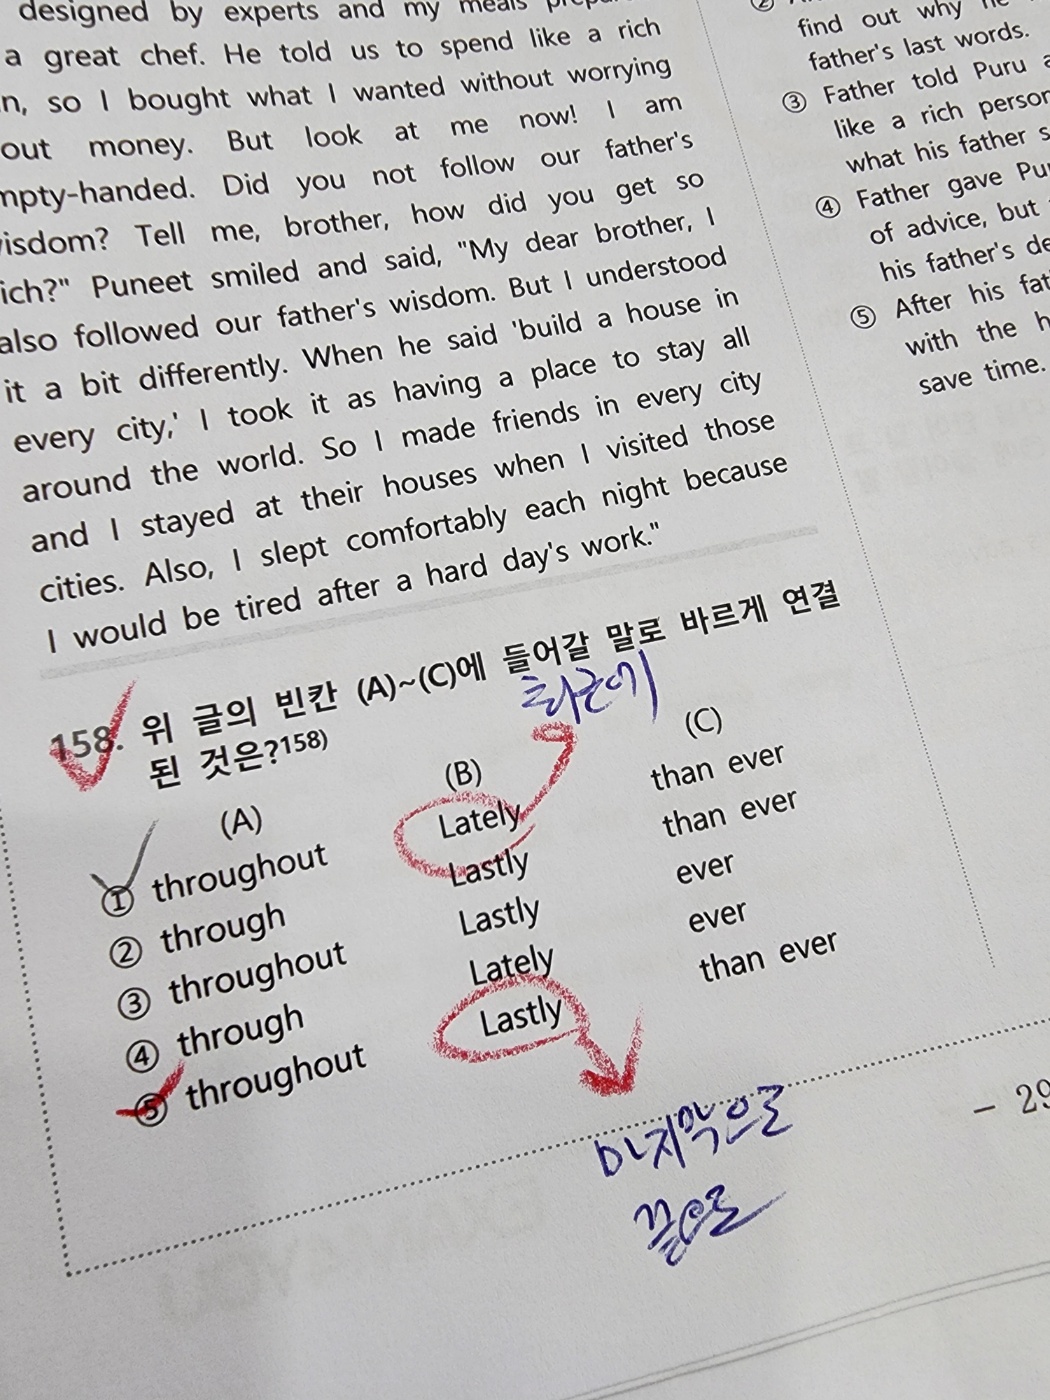 designed by experts and my meals
a great chef. He told us to spend like a rich
so I bought what I wanted without worrying
out money. But look at me now! I am
mpty-handed. Did you not follow our father's
isdom? Tell me, brother, how did you get so
ich?" Puneet smiled and said, "My dear brother, I
also followed our father's wisdom. But I understood
it a bit differently. When he said 'build a house in
every city,' I took it as having a place to stay all
around the world. So I made friends in every city
and I stayed at their houses when I visited those
cities. Also, I slept comfortably each night because
I would be tired after a hard day's work."
158. 위 글의 빈칸 (A)~(C)에 들어갈 말로 바르게 연결
된 것은?158)
최근에
(A) (B) (C)
① throughout Lately than ever
② through Lastly than ever
③ throughout Lastly ever
④ through Lately ever
⑤ throughout Lastly than ever
마지막으로
끝으로
find out why he
father's last words.
③ Father told Puru
like a rich person
what his father
④ Father gave
of advice, but
his father's
⑤ After his
with the
save time.
– 29